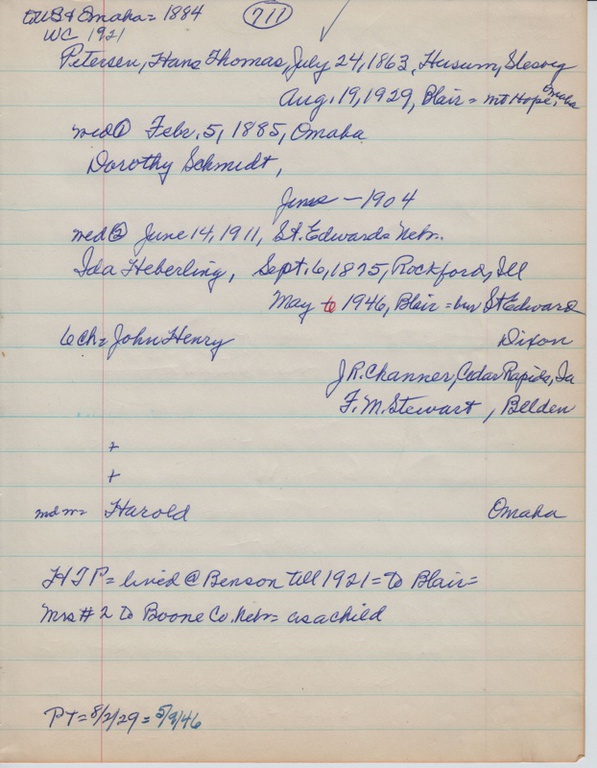 to US & Omaha = 1884
711
WC 1921
Petersen, Hans Thomas, July 24, 1863, Husum, Slesvig
Aug. 19, 1929, Blair = Mt Hope, Omaha
med ① Febr. 5, 1885, Omaha
Dorothy Schmidt,
June — 1904
med ② June 14, 1911, St. Edwards Nebr.
Ida Heberling, Sept. 6, 1875, Rockford, Ill
May 6 1946, Blair = bur St Edward
6 ch = John Henry Dixon
J.R. Channer, Cedar Rapids, Ia
F. M. Stewart, Belden
+
+
md m = Harold Omaha
HTP = lived @ Benson till 1921 = to Blair =
Mrs # 2 to Boone Co. Nebr = as a child
PT = 8/2/29 = 5/9/46